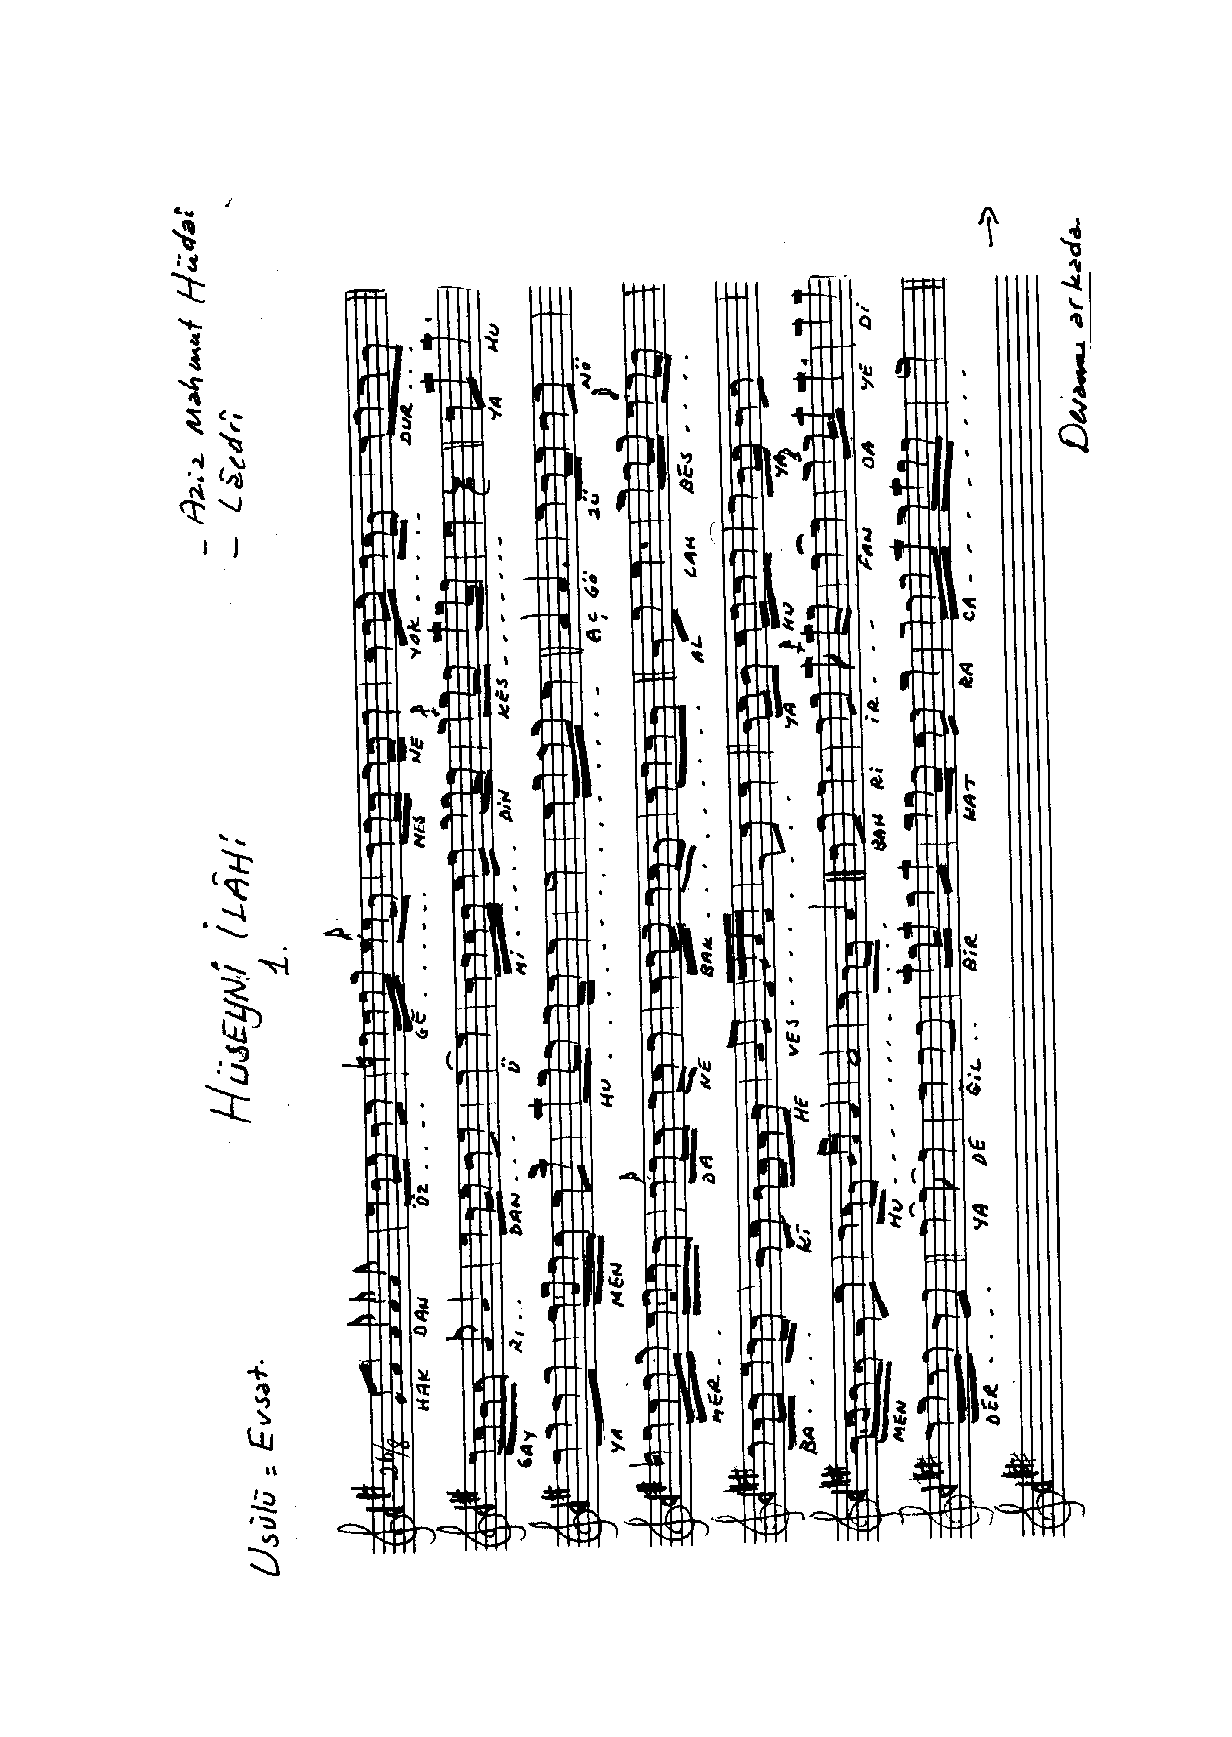 HÜSEYNİ İLÂHİ
1.
- Aziz Mahmut Hüdai
- Lâedri
Usülü = Evsat.
26/8
HAK DAN ÖZ.... GE....... NES NE YOK...... DUR....
GAY Rİ... DAN... Ü Mİ...... DİN KES...... YA HU
YA MEN HU.................... AÇ GÖ ZÜ NÜ
MER... DA NE BAK............. AL LAH BES....
BA.... Kİ HE VES......... YA HU YA
MEN HU............ BAH Rİ İR.... FAN DA YE Dİ
DER..... YA DE ĞİL.. BİR KAT RA CA.........
Devamı arkada
→